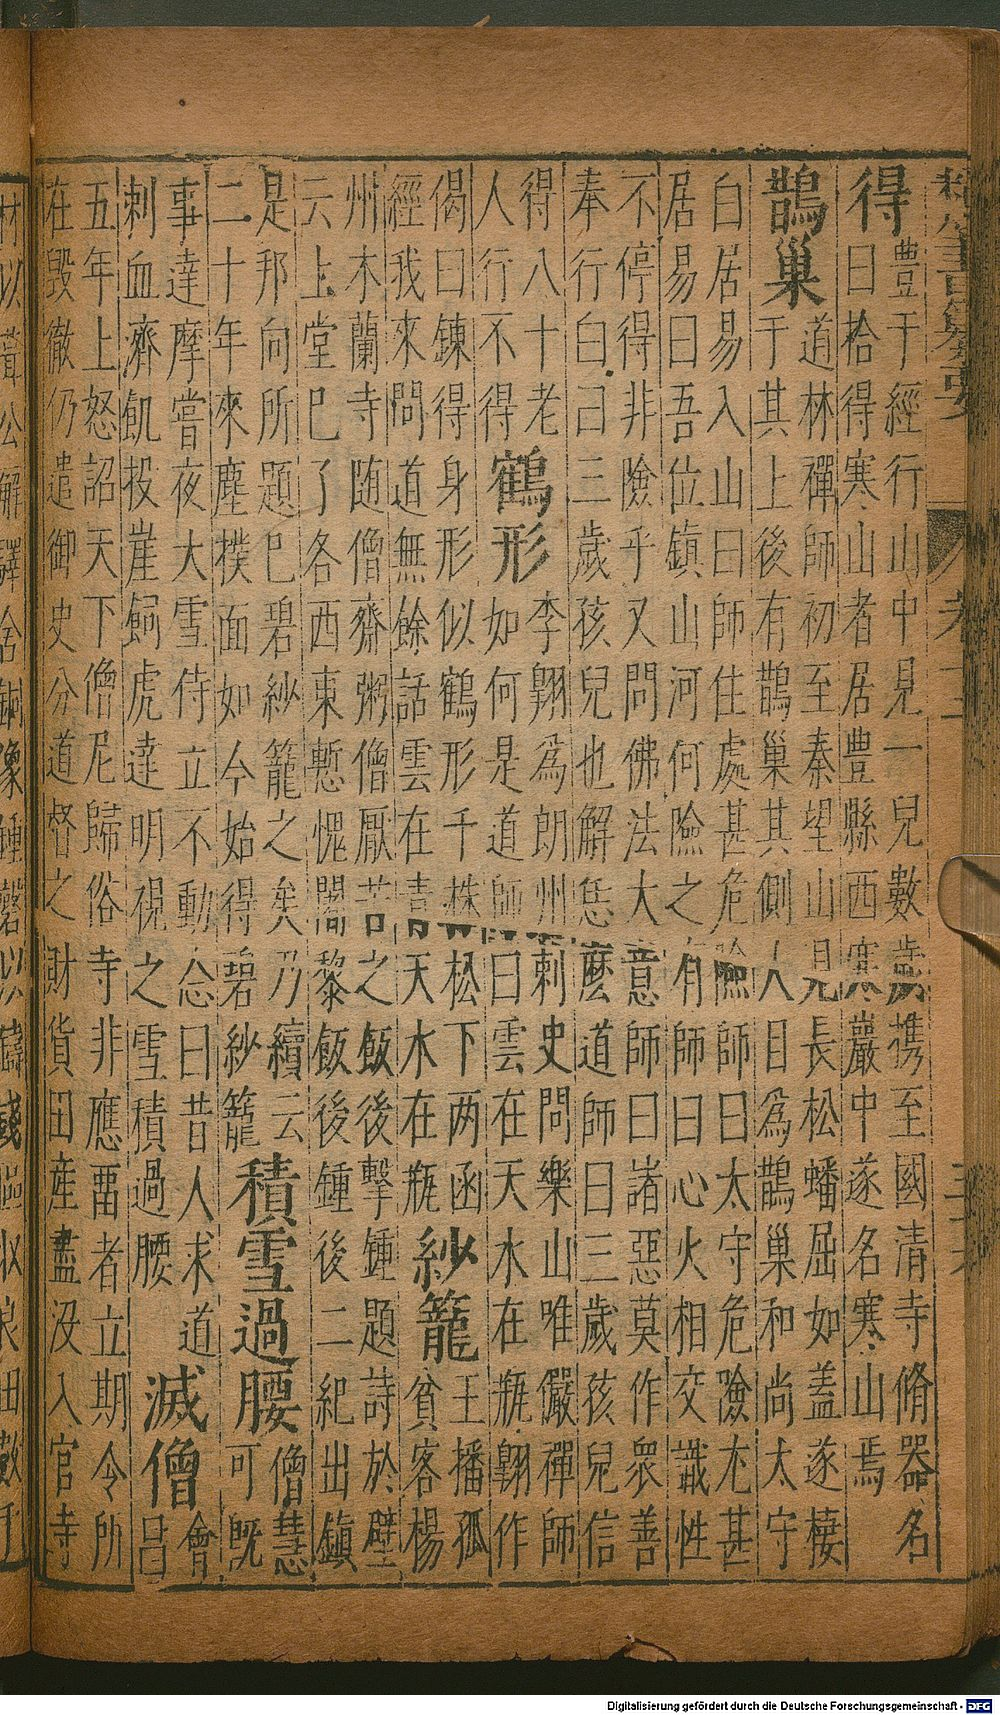 得
豊于經行山中見一兒數歲携至國清寺脩器名
曰拾得寒山者居豊縣西寒巖中遂名寒山焉
鵲巢
道林禪師初至秦望山見長松蟠屈如蓋遂棲
于其上後有鵲巢其側人目爲鵲巢和尚太守
白居易入山曰師住處甚危險師曰太守危險尤甚
居易曰吾位鎮山河何險之有師曰心火相交識性
不停得非險乎又問佛法大意師曰諸惡莫作衆善
奉行白曰三歲孩兒也解恁麽道師曰三歲孩兒信
得八十老
人行不得
鶴形
李翺爲朗州刺史問樂山唯儼禪師
如何是道師曰雲在天水在瓶翺作
偈曰錬得身形似鶴形千株松下两函
經我來問道無餘話雲在青天水在瓶
紗籠
王播孤
貧客楊
州木蘭寺随僧齋粥僧厭苦之飯後擊鍾題詩於壁
云上堂巳了各西東慙愧闍黎飯後鍾後二紀出鎮
是邦向所題巳碧紗籠之矣乃續云
二十年來塵撲面如今始得碧紗籠
積雪過腰
僧慧
可旣
事達摩嘗夜大雪侍立不動念曰昔人求道
刺血濟飢投崖飼虎達明視之雪積過腰
滅僧
會
昌
五年上怒詔天下僧尼歸俗寺非應畱者立期令所
在毀徹仍遣御史分道督之財貨田産盡没入官寺
材以葺公廨驛舍銅像鍾磬以鑄錢
収良田數千
Digitalisierung gefördert durch die Deutsche Forschungsgemeinschaft - DFG